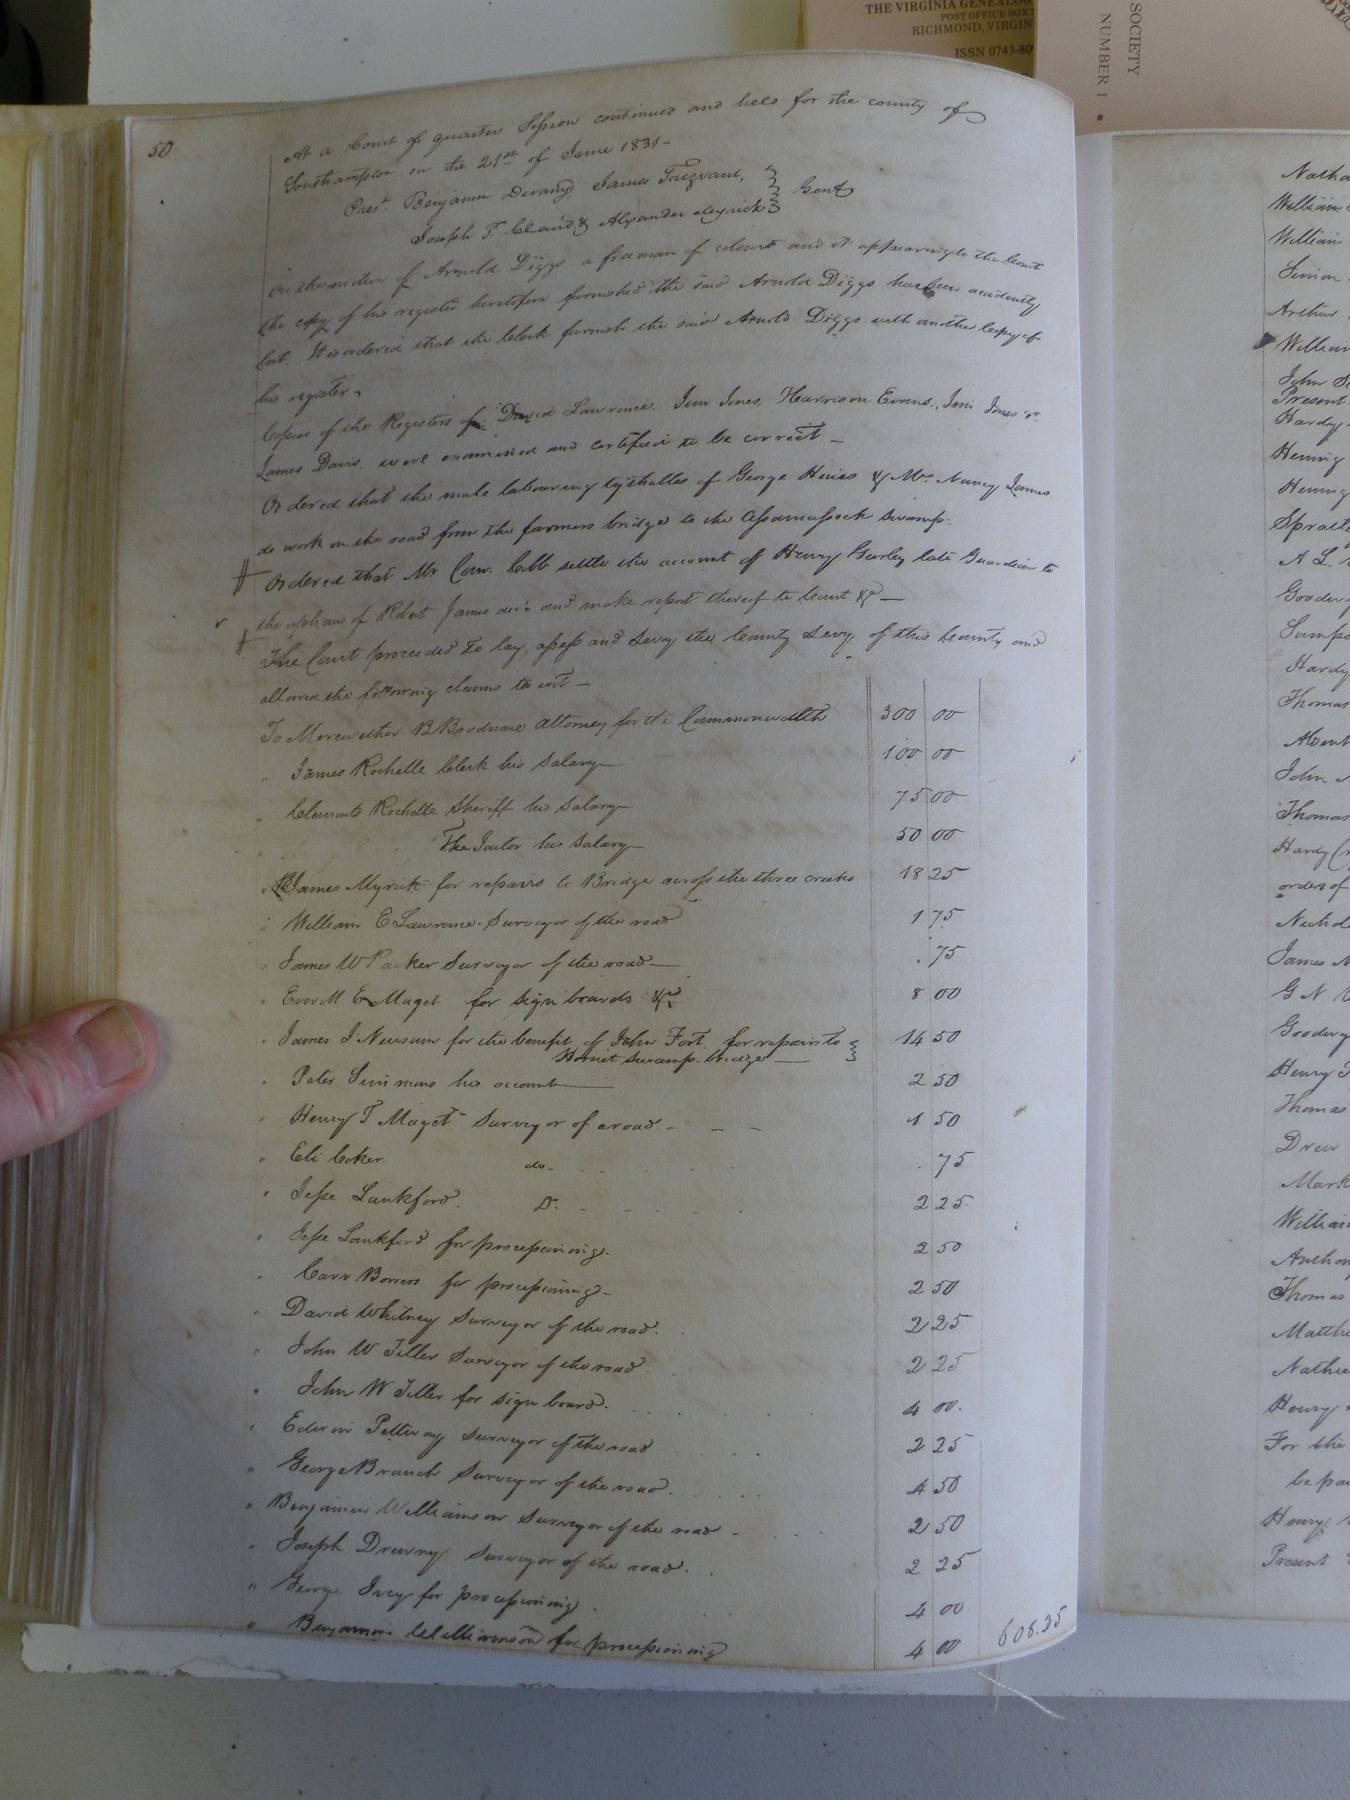 THE VIRGINIA GENEALOG
POST OFFICE BOX
RICHMOND, VIRGIN
ISSN 0743-80
SOCIETY
NUMBER 1
50
At a Court of quarter Session continued and held for the county of
Southampton on the 21st of June 1831-
Prest. Benjamin Devany, James Trezvant,
Joseph T. Claud & Alexander Myrick Gent
On the motion of Arnold Diggs a free man of colour and it appearing to the Court
the copy of his register heretofore furnished the said Arnold Diggs has been accidently
lost. It is ordered that the Clerk furnish the said Arnold Diggs with another Copy of
his register-
Copies of the Registers of David Lawrence, Jim Jones, Harrison Evans, Jim Jones or
James Davis were examined and certified to be correct-
Ordered that the male labouring tythables of George Hines & Mrs. Nancy James
do work on the road from the farmers bridge to the Assamussock swamp.
Ordered that Mr Cobb settle the account of Henry Gurley late Guardian to
the orphans of Robert James dec'd and make report thereof to Court &c-
The Court proceeded to lay, assess and Levy the County Levy of this County and
allowed the following claims to wit-
To Merewether B Brodnax Attorney for the Commonwealth 300 00
" James Rochelle Clerk his Salary 100 00
" Clements Rochelle Sheriff his Salary 75 00
" The Jailor his Salary 50 00
" James Myrick for repairs to Bridge across the three creeks 18 25
" William E Lawrence Surveyor of the road 1 75
" James W Parker Surveyor of the road 75
" Everett E Maget for sign boards &c 8 00
" James J Newsum for the benefit of John Fort for repairs to 14 50
Hornet Swamp bridge
" Peter Simmons his account 2 50
" Henry T Maget Surveyor of a road 1 50
" Eli Coker do. 75
" Jesse Lankford Do. 2 25
" Jesse Lankford for processioning 2 50
" Carr Bowers for processioning 2 50
" David Whitney Surveyor of the road 2 25
" John W Teller Surveyor of the road 2 25
" John W Teller for sign board 4 00
" Edwin Pettway Surveyor of the road 2 25
" George Branch Surveyor of the road 4 50
" Benjamin Williamson Surveyor of the road 2 50
" Joseph Drewry Surveyor of the road 2 25
" George Ivey for processioning 4 00
" Benjamin Williamson for processioning 4 00
606.25
William
William
Simon
Arthur
William
Present
Hardy
Henning
Henning
Hardy
Thomas
John
Thomas
orders of
Goodwyn
Henry
Thomas
Drew
Mark
William
Anthony
Thomas
Henry
For the
Henry
Present